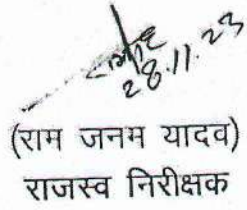 28.11.23
(राम जनम यादव)
राजस्व निरीक्षक